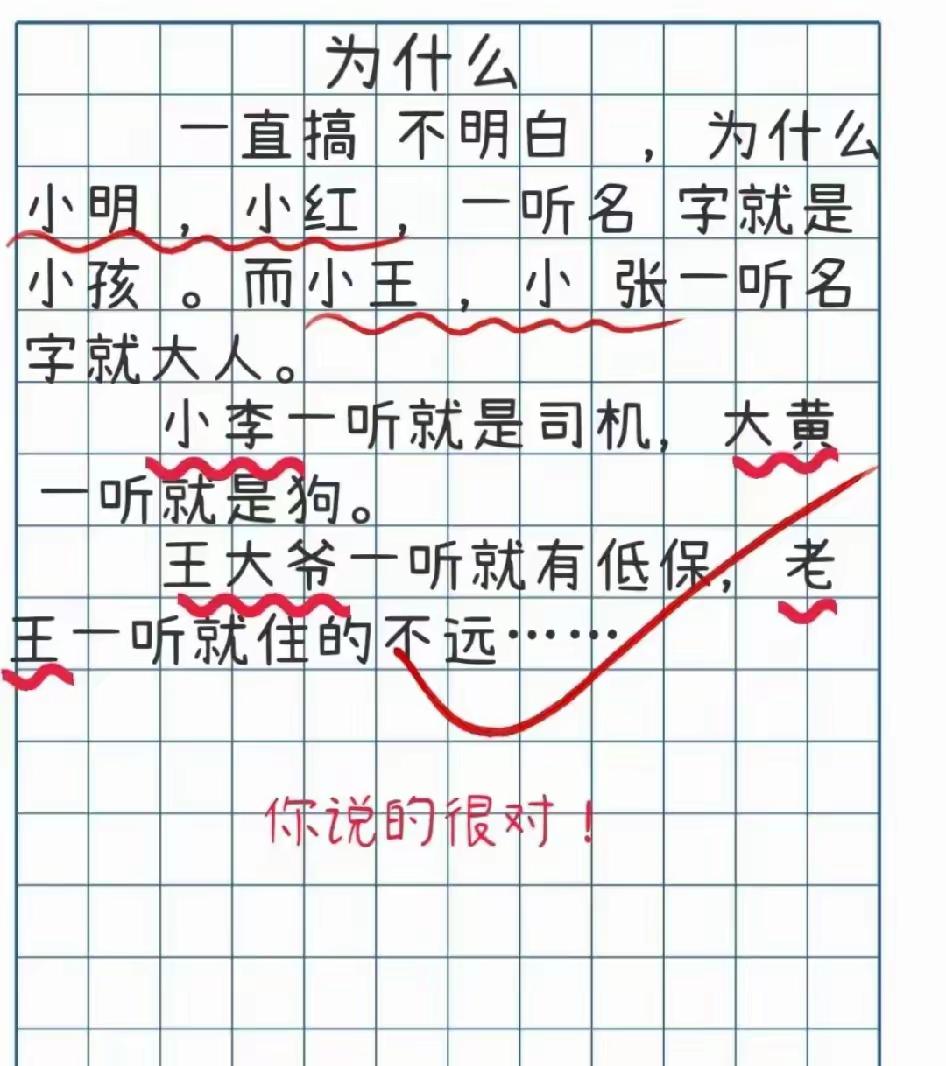 为什么
一直搞不明白，为什么
小明，小红，一听名字就是
小孩。而小王，小张一听名
字就大人。
小李一听就是司机，大黄
一听就是狗。
王大爷一听就有低保，老
王一听就住的不远……
你说的很对！